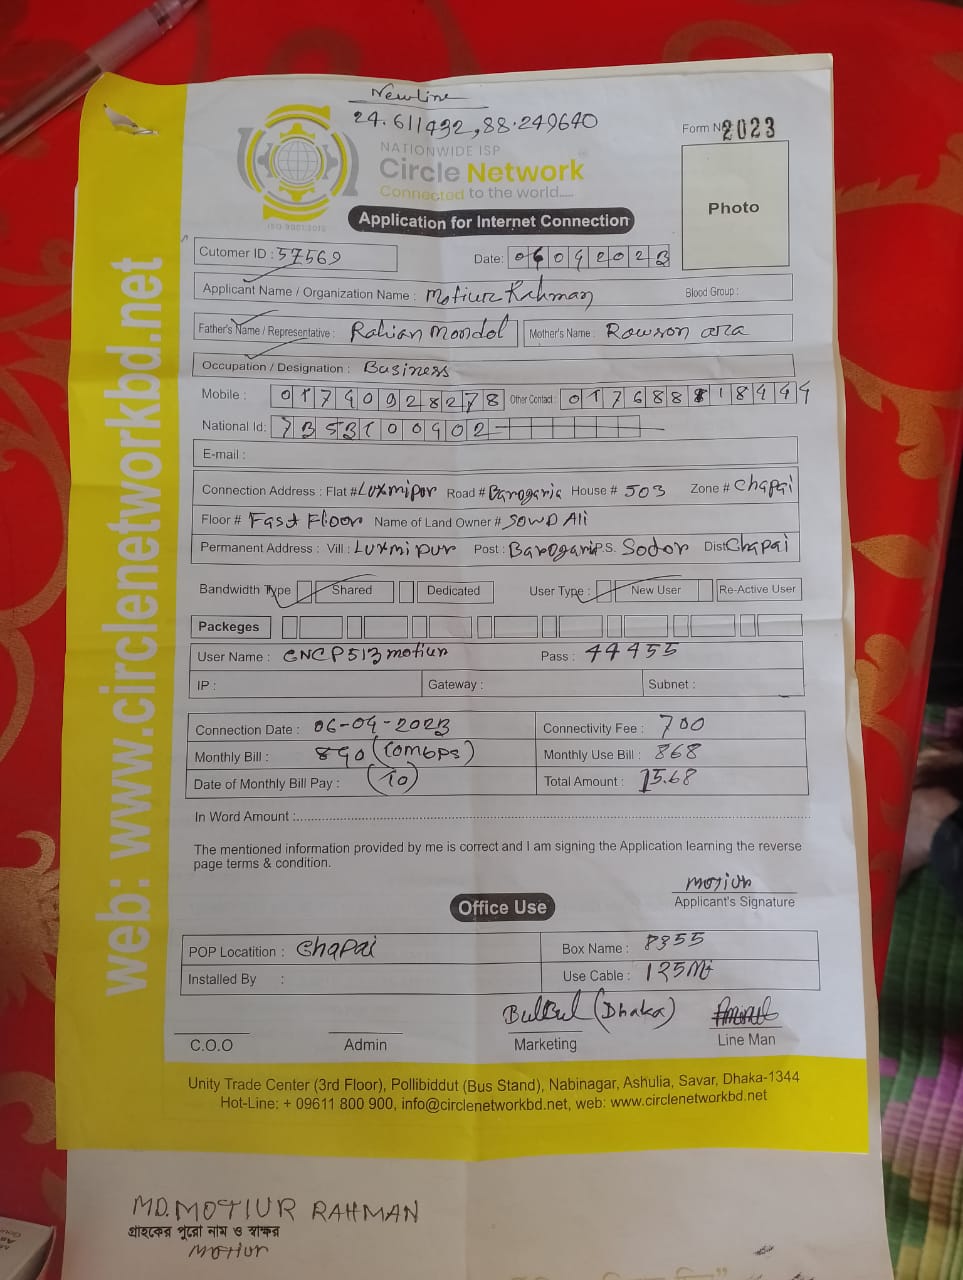 Newline
24.611492, 88.249640
Form No 2023
NATIONWIDE ISP
Circle Network
Connected to the world.....
ISO 9001:2015
Photo
Application for Internet Connection
Cutomer ID : 57569
Date: 06 09 2023
Applicant Name / Organization Name : Motiur Rahman Blood Group :
Father's Name / Representative : Rahian Mondol Mother's Name : Rowson ara
Occupation / Designation : Business
Mobile : 01740928278 Other Contact : 01768818444
National Id: 7353100902
E-mail :
Connection Address : Flat # Luxmipor Road # Barogaria House # 503 Zone # Chapai
Floor # Fast Floor Name of Land Owner # SOWD Ali
Permanent Address : Vill : Luxmipur Post : Barogari P.S. Sodor Dist Chapai
Bandwidth Type Shared Dedicated User Type : New User Re-Active User
Packeges
User Name : CNCP513motiur Pass : 44455
IP : Gateway : Subnet :
Connection Date : 06-09-2023 Connectivity Fee : 700
Monthly Bill : 890 (10mbps) Monthly Use Bill : 868
Date of Monthly Bill Pay : (10) Total Amount : 15.68
In Word Amount :
The mentioned information provided by me is correct and I am signing the Application learning the reverse
page terms & condition.
motiur
Applicant's Signature
Office Use
POP Locatition : Chapai Box Name : P355
Installed By : Use Cable : 125Mt
Bulbul (Dhaka)
C.O.O Admin Marketing Line Man
Unity Trade Center (3rd Floor), Pollibiddut (Bus Stand), Nabinagar, Ashulia, Savar, Dhaka-1344
Hot-Line: + 09611 800 900, info@circlenetworkbd.net, web: www.circlenetworkbd.net
web: www.circlenetworkbd.net
MD. MOTIUR RAHMAN
গ্রাহকের পুরো নাম ও স্বাক্ষর
Motiur